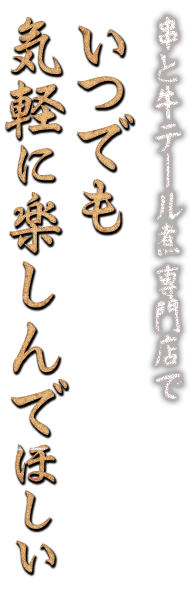 串と牛テール煮専門店で
いつでも
気軽に楽しんでほしい